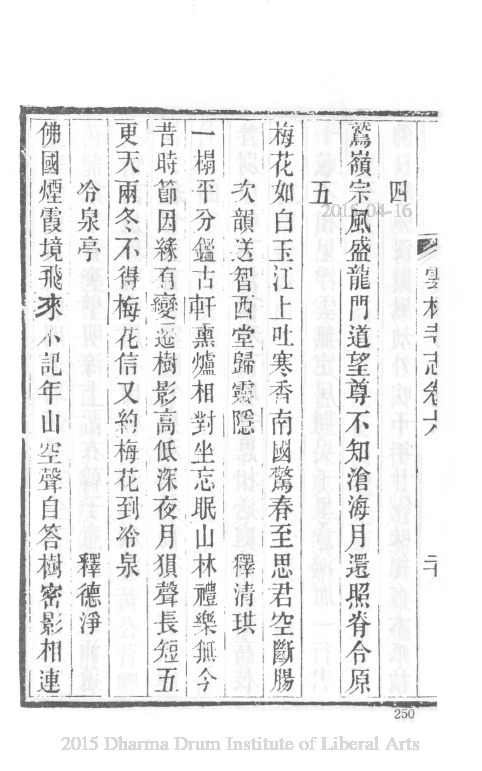 雲林寺志卷六
二十
四
鷲嶺宗風盛龍門道望尊不知滄海月還照脊令原
五
梅花如白玉江上吐寒香南國驚春至思君空斷腸
次韻送智西堂歸靈隱　釋清珙
一榻平分鑑古軒熏爐相對坐忘眠山林禮樂無今
昔時節因緣有變遷樹影高低深夜月猿聲長短五
更天兩冬不得梅花信又約梅花到冷泉
冷泉亭　釋德淨
佛國煙霞境飛來不記年山空聲自答樹密影相連
2015-04-16
250
2015 Dharma Drum Institute of Liberal Arts